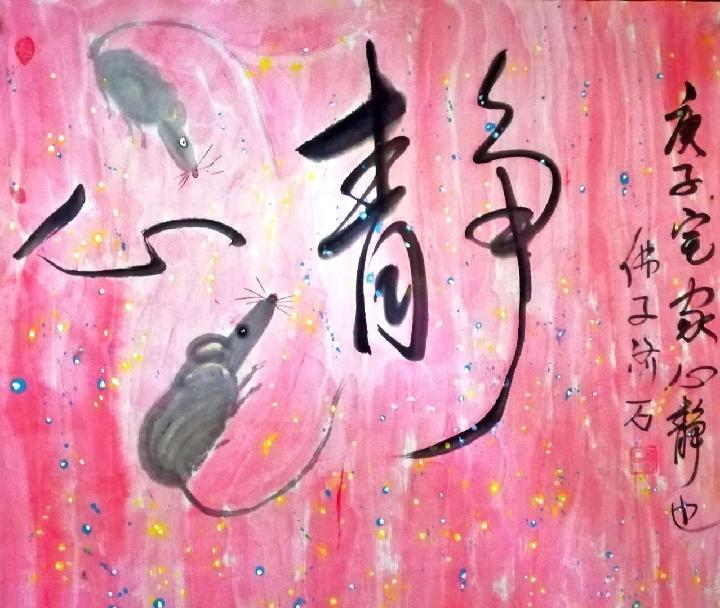 心静
庚子宅家心静也
佛子济石